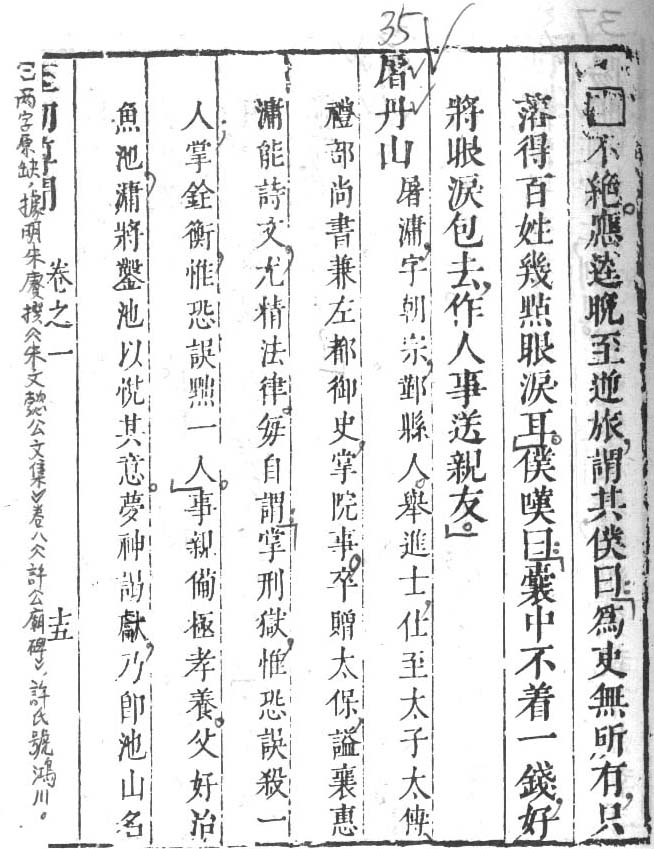 35
□不絶。應逵晚至逆旅,謂其僕曰:「為吏無所有,只
落得百姓幾點眼淚耳。」僕嘆曰:「囊中不着一錢,好
將眼淚包去,作人事送親友。」
屠丹山 屠滽,字朝宗,鄞縣人。舉進士,仕至太子太傅
禮部尚書兼左都御史,掌院事。卒贈太保,謚襄惠
滽能詩文,尤精法律。每自謂:「掌刑獄,惟恐誤殺一
人;掌銓衡,惟恐誤點一人。」事親備極孝養。父好治
魚池,滽將鑿池以悅其意,夢神詣獻,乃卽池山名
卷之一 十五
两字原缺,據明朱賡撰《朱文懿公文集》卷八《許公廟碑》,許氏號鴻川。